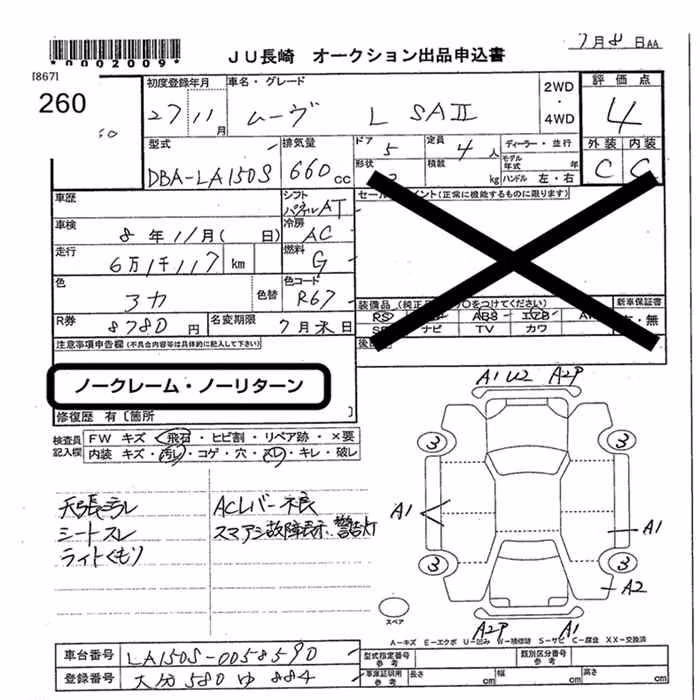 *0002009*
JU長崎 オークション出品申込書
7月8日AA
[867]
260
初度登録年月
27 11月
車名・グレード
ムーヴ L SAII
2WD
・
4WD
評価点
4
外装 内装
C C
型式
DBA-LA150S
排気量
660cc
ドア
5
定員
4人
ディーラー・並行
モデル年式 年
形状
積載 kg
ハンドル 左・右
車歴
シフト
AT
セールスポイント(正常に機能するものに限ります)
車検
8年11月( 日)
冷房
AC
走行
6万1千117 km
燃料
G
色
色替
色コード
R67
R券
8780円
名変期限
7月末日
装備品
新車保証書
有・無
ナビ TV カワ
注意事項申告欄(不具合内容等は具体的に記入して下さい)
ノークレーム・ノーリターン
修復歴 有〔箇所
検査員記入欄
FW キズ・飛石・ヒビ割・リペア跡・×要
内装 キズ・汚レ・コゲ・穴・スレ・キレ・破レ
シートスレ
ライトくもり
ACレバー不良
スマアシ故障表示、警告灯
A1 U2 A2P
3 3
A1 A1
3 3
A2
スペア
A2P A1
A-キズ E-エクボ U-凹み W-補修跡 S-サビ C-腐食 XX-交換済
車台番号
LA150S-0058590
型式指定番号 参考
類別区分番号 参考
登録番号
大分 580 ゆ 884
車庫証明用 参考
長さ cm
幅 cm
高さ cm